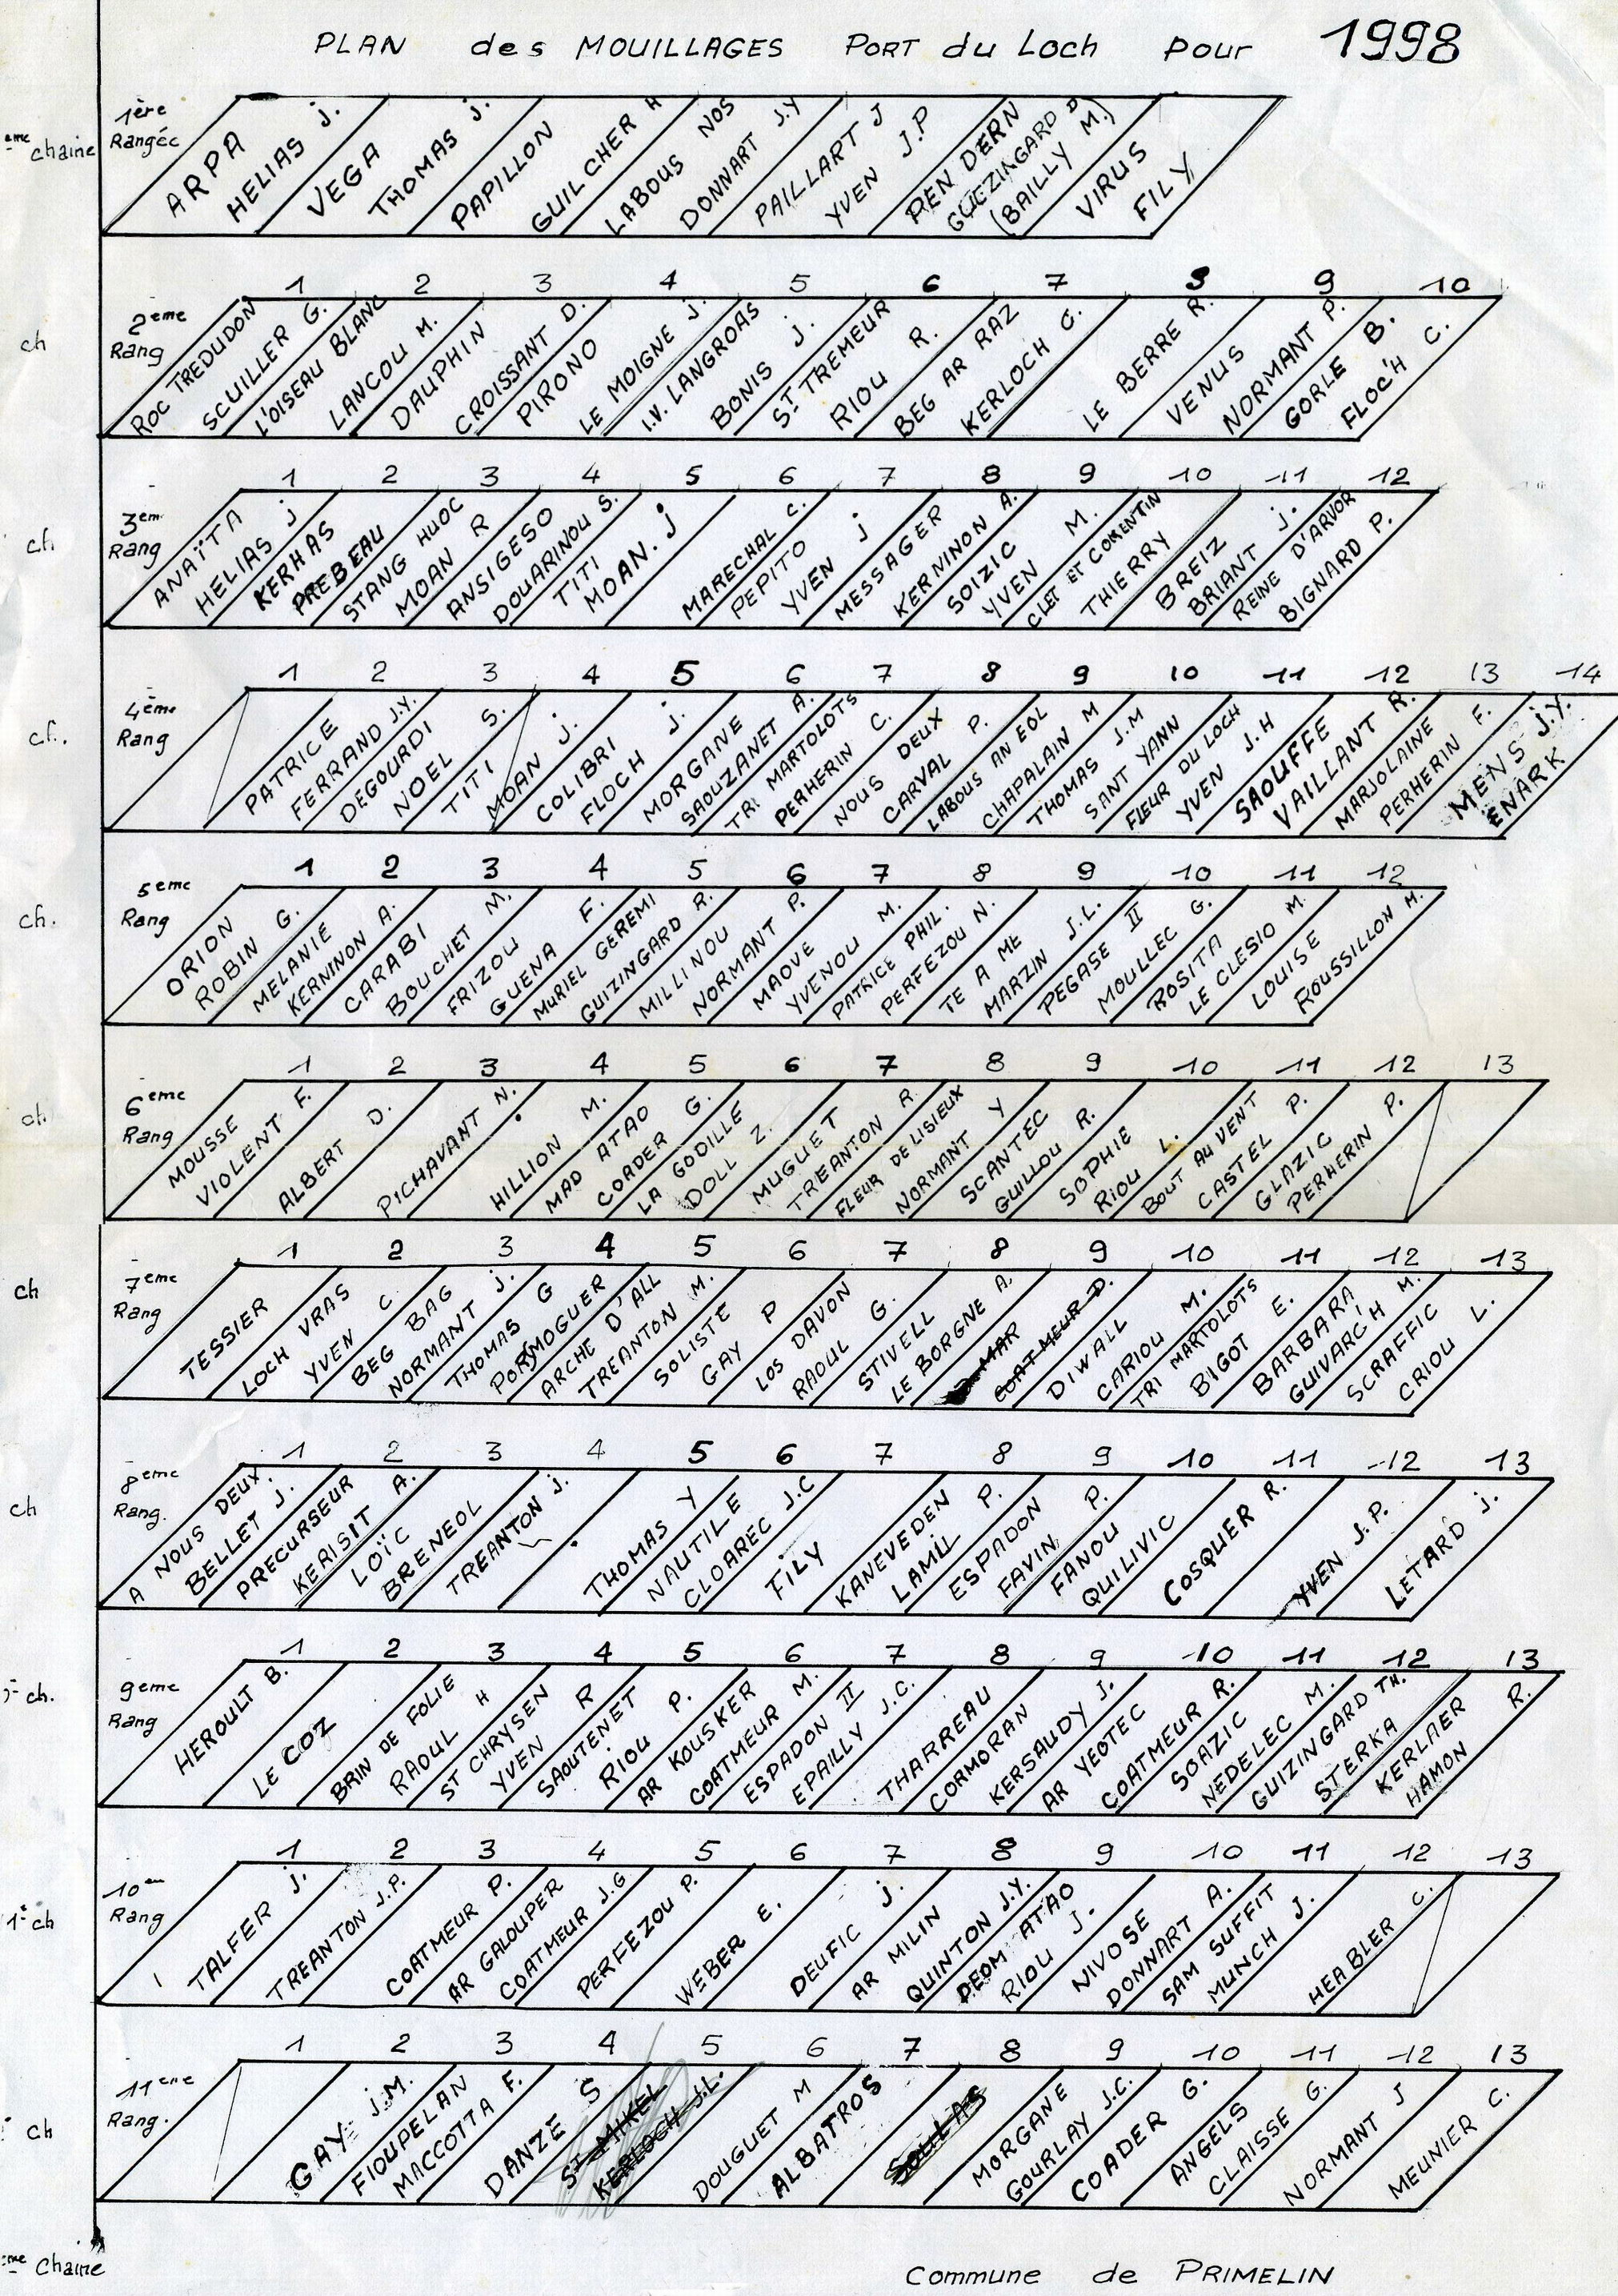 PLAN des MOUILLAGES PORT du Loch pour 1998
eme chaine
1ère Rangée
ARPA
HELIAS J.
VEGA
THOMAS J.
PAPILLON
GUILCHER H
LABOUS NOS
DONNART J.Y
PAILLART J
YVEN J.P
PEN DERN
GUEZINGARD D
(BAILLY M.)
VIRUS
FILY
1 2 3 4 5 6 7 8 9 10
ch
2eme Rang
ROC TREDUDON
SCUILLER G.
L'OISEAU BLANC
LANCOU M.
DAUPHIN
CROISSANT D.
PIRONO
LE MOIGNE J.
I.V. LANGROAS
BONIS J.
ST TREMEUR
RIOU R.
BEG AR RAZ
KERLOCH G.
LE BERRE R.
VENUS
NORMANT P.
GORLE B.
FLOC'H C.
1 2 3 4 5 6 7 8 9 10 11 12
ch
3em Rang
ANAÏTA
HELIAS J
KERHAS
PREBEAU
STANG HUOC
MOAN R
ANSIGESO
DOUARINOU S.
TITI
MOAN. J
MARECHAL C.
PEPITO
YVEN J
MESSAGER
KERNINON A.
SOIZIC
YVEN M.
CLET ET CORENTIN
THIERRY
BREIZ
BRIANT J.
REINE D'ARVOR
BIGNARD P.
1 2 3 4 5 6 7 8 9 10 11 12 13 14
ch.
4ème Rang
PATRICE
FERRAND J.Y.
DEGOURDI
NOEL S.
TITI
MOAN J.
COLIBRI
FLOCH J.
MORGANE
SAOUZANET A.
TRI MARTOLOTS
PERHERIN C.
NOUS DEUX
CARVAL P.
LABOUS AN EOL
CHAPALAIN M
THOMAS J.M
SANT YANN
FLEUR DU LOCH
YVEN J.H
SAOUFFE
VAILLANT R.
MARJOLAINE
PERHERIN F.
MENS J.Y.
ENARK
1 2 3 4 5 6 7 8 9 10 11 12
ch.
5eme Rang
ORION
ROBIN G.
MELANIE
KERNINON A.
CARABI
BOUCHET M.
FRIZOU
GUENA F.
MURIEL GEREMI
GUIZINGARD R.
MILLINOU
NORMANT P.
MAOVE
YVENOU M.
PATRICE PHIL.
PERFEZOU N.
TE A ME
MARZIN J.L.
PEGASE II
MOULLEC G.
ROSITA
LE CLESIO M.
LOUISE
ROUSSILLON M.
1 2 3 4 5 6 7 8 9 10 11 12 13
ch
6eme Rang
MOUSSE
VIOLENT F.
ALBERT D.
PICHAVANT N.
HILLION M.
MAD ATAO
CORDER G.
LA GODILLE
DOLL Z.
MUGUET
TREANTON R.
FLEUR DE LISIEUX
NORMANT Y
SCANTEC
GUILLOU R.
SOPHIE
RIOU L.
BOUT AU VENT
CASTEL P.
GLAZIC
PERHERIN P.
1 2 3 4 5 6 7 8 9 10 11 12 13
ch
7eme Rang
TESSIER
LOCH VRAS
YVEN C
BEG BAG
NORMANT J.
THOMAS G
PORSMOGUER
ARCHE D'ALL
TREANTON M.
SOLISTE
GAY P
LOS DAVON
RAOUL G.
STIVELL
LE BORGNE A.
MAR
COATMEUR D.
DIWALL
CARIOU M.
TRI MARTOLOTS
BIGOT E.
BARBARA
GUIVARC'H M.
SCRAFFIC
CRIOU L.
1 2 3 4 5 6 7 8 9 10 11 12 13
ch
8eme Rang.
A NOUS DEUX.
BELLET J.
PRECURSEUR
KERISIT A.
LOÏC
BRENEOL
TREANTON J.
THOMAS Y
NAUTILE
CLOAREC J.C
FILY
KANEVEDEN
LAMIL P.
ESPADON
FAVIN P.
FANOU
QUILIVIC
COSQUER R.
YVEN J.P.
LETARD J.
1 2 3 4 5 6 7 8 9 10 11 12 13
ch.
9eme Rang
HEROULT B.
LE COZ
BRIN DE FOLIE
RAOUL H
ST CHRYSEN
YVEN R
SAOUTENET
RIOU P.
AR KOUSKER
COATMEUR M.
ESPADON II
EPAILLY J.C.
THARREAU
CORMORAN
KERSAUDY J.
AR YEOTEC
COATMEUR R.
SOAZIC
NEDELEC M.
GUIZINGARD TH.
STERKA
KERLAER
HAMON R.
1 2 3 4 5 6 7 8 9 10 11 12 13
1e ch
10em Rang
TALFER J.
TREANTON J.P.
COATMEUR P.
AR GALOUPER
COATMEUR J.G
PERFEZOU P.
WEBER E.
DEUFIC J.
AR MILIN
QUINTON J.Y.
DEOM ATAO
RIOU J.
NIVOSE
DONNART A.
SAM SUFFIT
MUNCH J.
HEABLER C.
1 2 3 4 5 6 7 8 9 10 11 12 13
ch
11eme Rang.
GAY J.M.
FIOUPELAN
MACCOTTA F.
DANZE S
ST MIKEL
KERLOCH J.L.
DOUGUET M
ALBATROS
SOULAS
MORGANE
GOURLAY J.C.
COADER G.
ANGELS
CLAISSE G.
NORMANT J
MEUNIER C.
eme Chaine
Commune de PRIMELIN